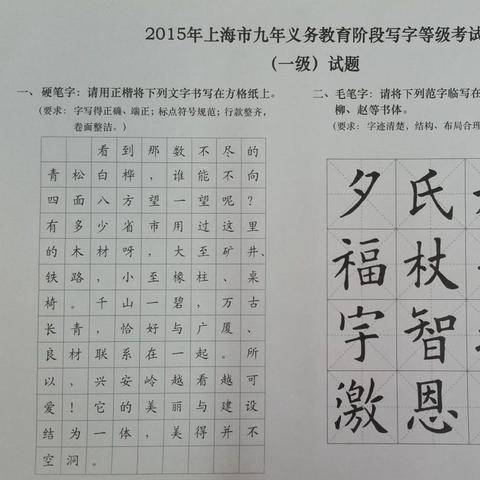 2015年上海市九年义务教育阶段写字等级考试
（一级）试题
一、硬笔字：请用正楷将下列文字书写在方格纸上。
（要求：字写得正确、端正；标点符号规范；行款整齐，
卷面整洁。）
看到那数不尽的
青松白桦，谁能不向
四面八方望一望呢？
有多少省市用过这里
的木材呀，大至矿井、
铁路，小至橡柱、桌
椅。千山一碧，万古
长青，恰好与广厦、
良材联系在一起。所
以，兴安岭越看越可
爱！它的美丽与建设
结为一体，美得并不
空洞。
二、毛笔字：请将下列范字临写在
柳、赵等书体。
（要求：字迹清楚，结构、布局合理
夕氏
福杖
宇智
激恩